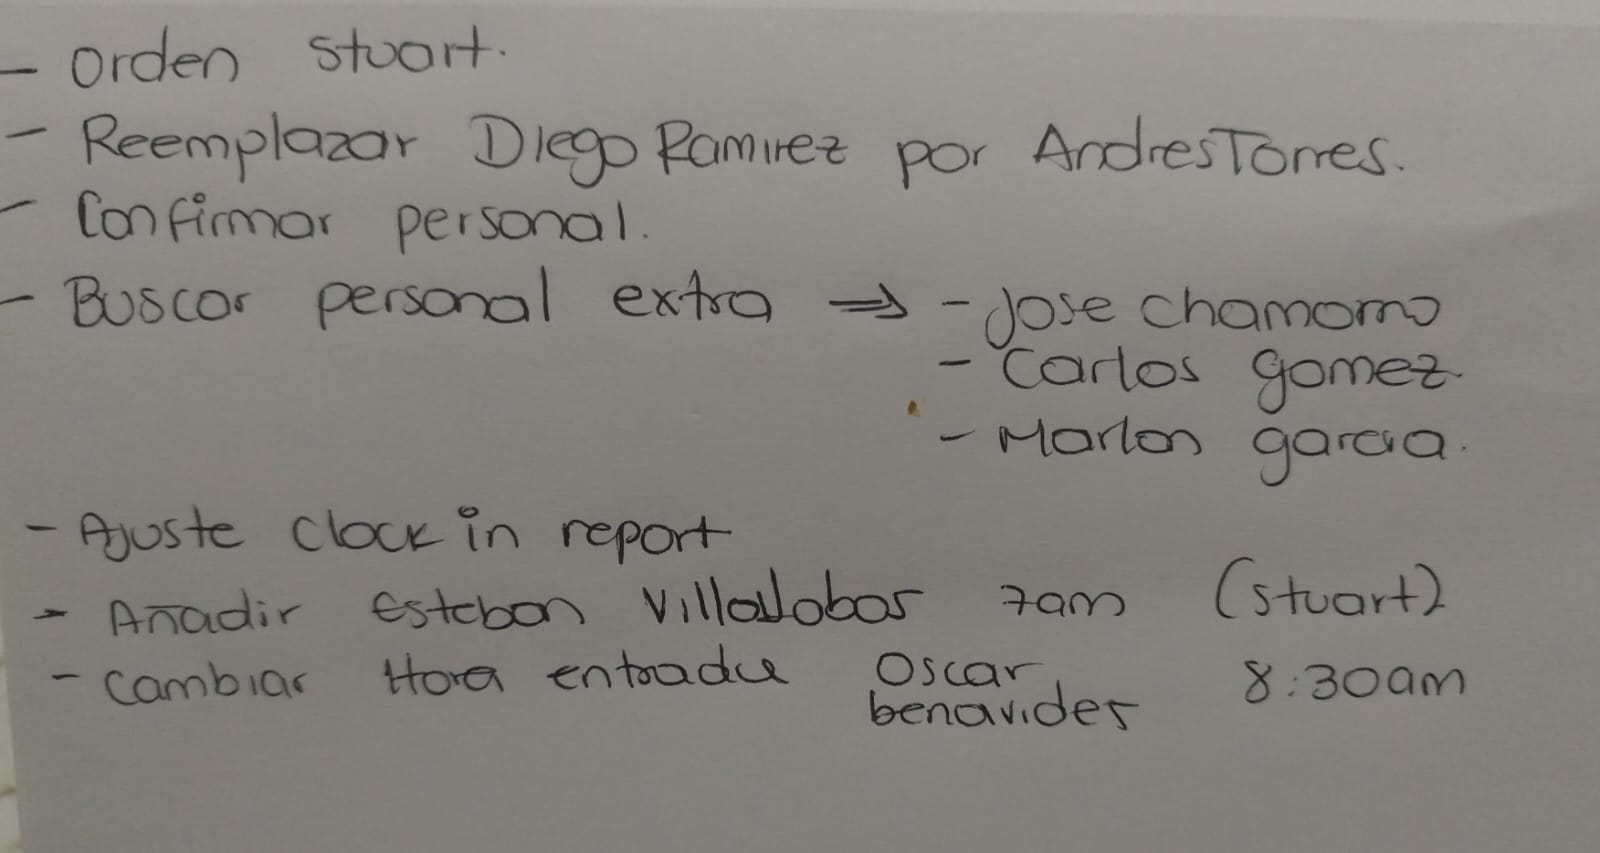 - Orden Stuart.
- Reemplazar Diego Ramirez por Andres Torres.
- Confirmar personal.
- Buscar personal extra ⇒ - Jose Chamorro
- Carlos gomez
- Marlon garcia.
- Ajuste Clock in report
- Añadir Esteban Villalobos 7am (Stuart)
- Cambiar Hora entrada Oscar 8:30am
benavides